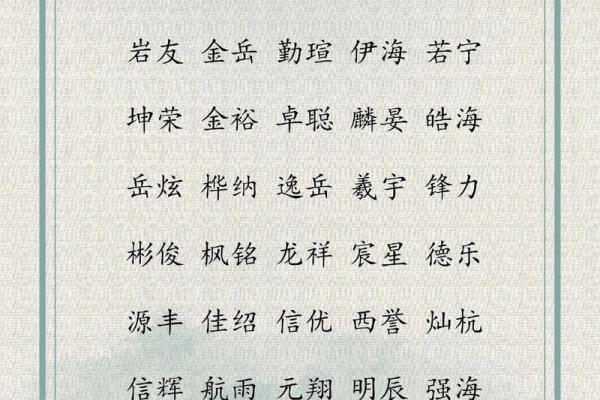 岩友 金岳 勤瑄 伊海 若宁
坤荣 金裕 卓聪 麟晏 皓海
岳炫 桦纳 逸岳 羲宇 锋力
彬俊 枫铭 龙祥 宸星 德乐
源丰 佳绍 信优 西誉 灿杭
信辉 航雨 元翔 明辰 强海